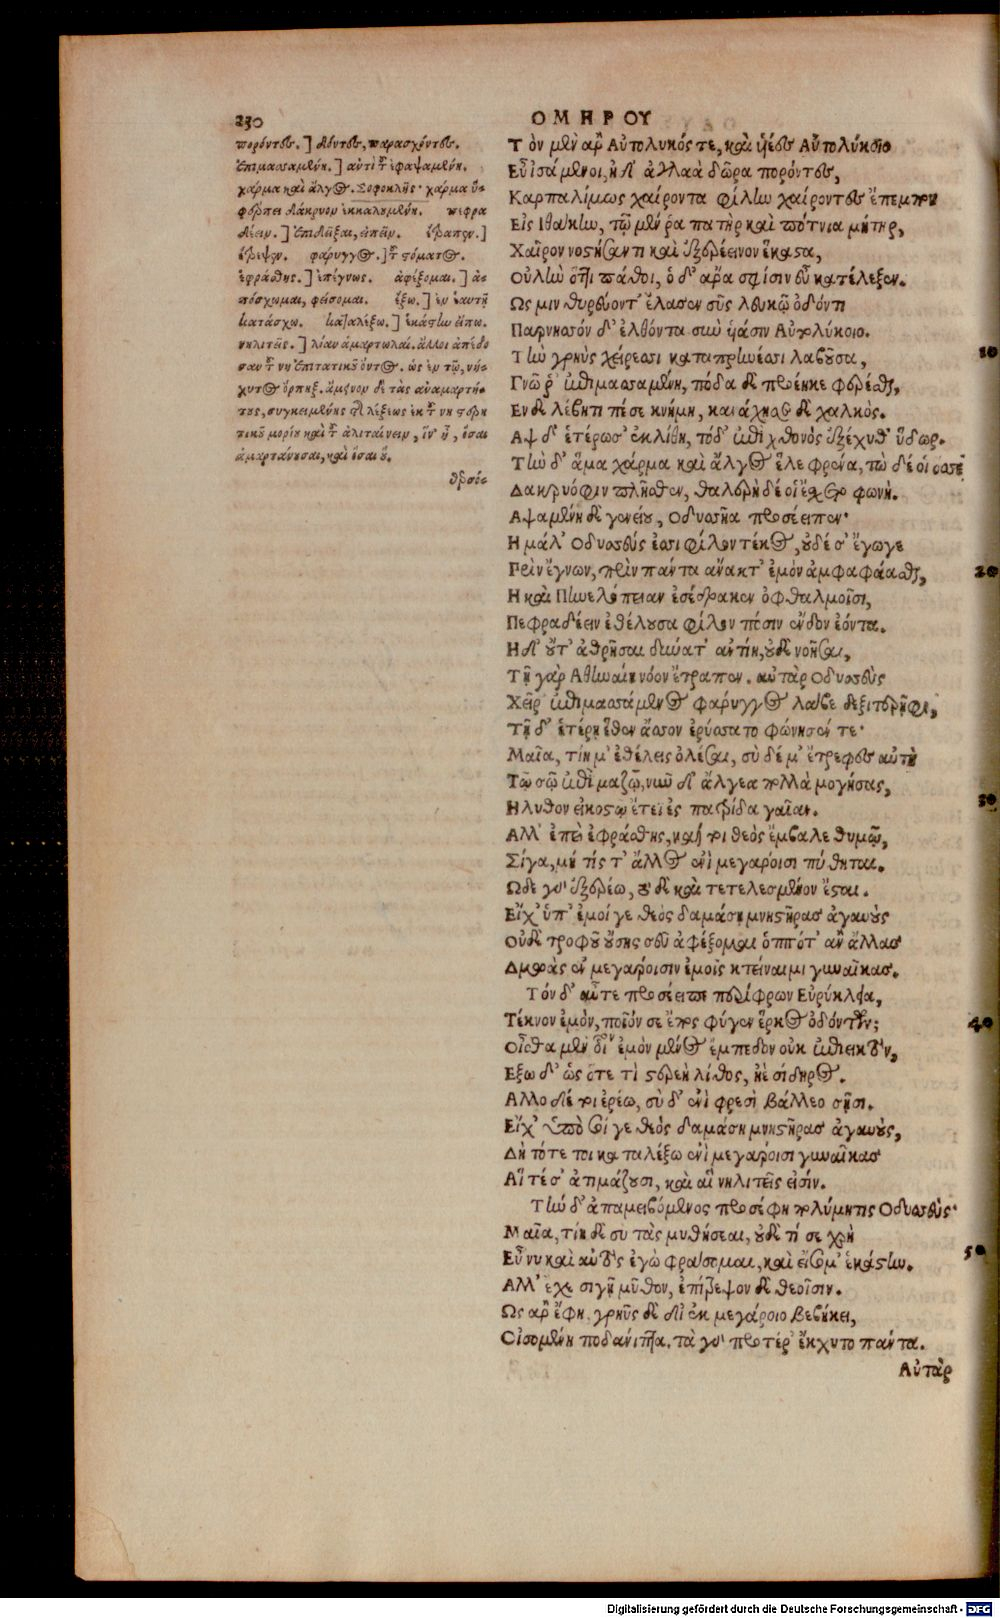 230
ΟΜΗΡΟΥ
πορόντες.] δόντες, παρασχόντες.
ἐπιμασσαμένη.] ἀντὶ τοῦ ἐφαψαμένη.
χάρμα καὶ ἄλγος. Σοφοκλῆς· χάρμα ὑ-
φέρπει δάκρυον ἐκκαλουμένη. πεφρα
δέειν.] ἐπιδεῖξαι, εἰπεῖν. ἔτραπεν.]
ἔτρεψεν. φάρυγγος.] τοῦ στόματος.
ἐφράσθης.] ἐπέγνως. ἀφέξομαι.] ἀ-
πόσχωμαι, φείσομαι. ἕξω.] ἐν ἑαυτῇ
κατάσχω. καταλέξω.] ἑκάστην εἴπω.
νηλιτεῖς.] λίαν ἁμαρτωλαί. ἄλλοι ἀπέδο
σαν τοῦ νη ἐπιτατικοῦ ὄντος. ὡς ἐν τῷ, νή-
χυτος ὅρπηξ. ἄμεινον δὲ τὰς ἀναμαρτή-
τους, συγκειμένης τῆς λέξεως ἐκ τοῦ νη στερη
τικοῦ μορίου καὶ τοῦ ἀλιταίνειν, ἵν' ᾖ, ὅσαι
ἁμαρτάνουσαι, καὶ ὅσαι οὔ.
θρσός-
Τὸν μὲν ἄρ' Αὐτόλυκός τε, καὶ υἱέες Αὐτολύκοιο
Εὖ ἰησάμενοι, ἠδ' ἀγλαὰ δῶρα πορόντες,
Καρπαλίμως χαίροντα φίλην χαίροντες ἔπεμπον
Εἰς Ἰθάκην, τῷ μέν ῥα πατὴρ καὶ πότνια μήτηρ,
Χαῖρον νοστήσαντι καὶ ἐξερέεινον ἕκαστα,
Οὐλὴν ὅττι πάθοι, ὁ δ' ἄρα σφίσιν εὖ κατέλεξεν.
Ως μιν θηρεύοντ' ἔλασεν σῦς λευκῷ ὀδόντι
Παρνησόν δ' ἐλθόντα σὺν υἱάσιν Αὐτολύκοιο.
Τὴν γρηῢς χείρεσσι καταπρηνέσσι λαβοῦσα,
10
Γνῶ ῥ' ἐπιμασσαμένη, πόδα δὲ προέηκε φέρεσθαι,
Εν δὲ λέβητι πέσε κνήμη, καναχησε δὲ χαλκός.
Αψ δ' ἑτέρωσ' ἐκλίθη, τόδ' ἐπὶ χθονὸς ἐξέχυθ' ὕδωρ.
Τὴν δ' ἅμα χάρμα καὶ ἄλγος ἕλε φρένα, τὼ δέ οἱ ὄσσε
Δακρυόφιν πλῆσθεν, θαλερὴ δέ οἱ ἔσχετο φωνή.
Αψαμένη δὲ γενείου, Ὀδυσσῆα προσέειπεν·
Η μάλ' Ὀδυσσεύς ἐσσι φίλον τέκος, οὐδέ σ' ἔγωγε
Πρὶν ἔγνων, πρὶν πάντα ἄνακτ' ἐμὸν ἀμφαφάασθαι,
20
Η καὶ Πηνελόπειαν ἐσέδρακεν ὀφθαλμοῖσι,
Πεφραδέειν ἐθέλουσα φίλον πόσιν ἔνδον ἐόντα.
Η δ' οὔτ' ἀθρῆσαι δύνατ' ἀντίη, οὐδὲ νοῆσαι,
Τῇ γὰρ Ἀθηναίη νόον ἔτραπεν. αὐτὰρ Ὀδυσσεὺς
Χεῖρ' ἐπιμασσάμενος φάρυγγος λάβε δεξιτερῆφι,
Τῇ δ' ἑτέρῃ ἕθεν ἆσσον ἐρύσσατο φώνησέν τε·
Μαῖα, τίη μ' ἐθέλεις ὀλέσαι, σὺ δέ μ' ἔτρεφες αὐτὴ
Τῷ σῷ ἐπὶ μαζῷ, νῦν δ' ἄλγεα πολλὰ μογήσας,
Ηλυθον εἰκοστῷ ἔτεϊ ἐς πατρίδα γαῖαν.
30
Αλλ' ἐπεὶ ἐφράσθης, καί τοι θεὸς ἔμβαλε θυμῷ,
Σίγα, μή τίς τ' ἄλλος ἐνὶ μεγάροισι πύθηται.
Ωδε γὰρ ἐξερέω, τὸ δὲ καὶ τετελεσμένον ἔσται.
Εἴχ' ὑπ' ἐμοί γε θεὸς δαμάσῃ μνηστῆρας ἀγαυοὺς
Οὐδὲ τροφοῦ οὔσης σεῦ ἀφέξομαι ὁππότ' ἂν ἄλλας
Δμωὰς ἐν μεγάροισιν ἐμοῖς κτείναιμι γυναῖκας.
Τόν δ' αὖτε προσέειπε περίφρων Εὐρύκλεια,
Τέκνον ἐμὸν, ποῖόν σε ἔπος φύγεν ἕρκος ὀδόντων;
40
Οἶσθα μὲν οἷον ἐμὸν μένος ἔμπεδον οὐκ ἐπιεικτὸν,
Εξω δ' ὡς ὅτε τὶς στερεὴ λίθος, ἠὲ σίδηρος.
Αλλο δέ τοι ἐρέω, σὺ δ' ἐνὶ φρεσὶ βάλλεο σῇσι.
Εἴχ' ὑπὸ σοί γε θεὸς δαμάσῃ μνηστῆρας ἀγαυοὺς,
Δὴ τότε τοι καταλέξω ἐνὶ μεγάροισι γυναῖκας
Αἵ τέ σ' ἀτιμάζουσι, καὶ αἳ νηλιτεῖς εἰσίν.
Τὴν δ' ἀπαμειβόμενος προσέφη πολύμητις Ὀδυσσεύς·
Μαῖα, τίη δὲ σὺ τὰς μυθήσεαι, οὐδὲ τί σε χρὴ
Εὖ νυ καὶ αὐτὸς ἐγὼ φράσομαι, καὶ εἴσομ' ἑκάστην.
50
Αλλ' ἔχε σιγῇ μῦθον, ἐπίτρεψον δὲ θεοῖσιν.
Ως ἄρ' ἔφη, γρηῢς δὲ δι' ἐκ μεγάροιο βεβήκει,
Οἰσομένη ποδάνιπτρα, τὰ γὰρ πρότερ' ἔκχυτο πάντα.
Αὐτὰρ
Digitalisierung gefördert durch die Deutsche Forschungsgemeinschaft - DFG